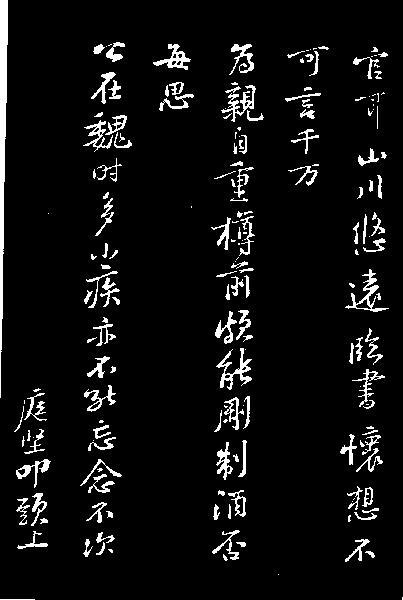 官耳山川悠遠臨書懷想不
可言千万
為親自重樽前頗能剛制酒否
每思
公在魏时多小疾亦不能忘念不次
庭坚叩頭上